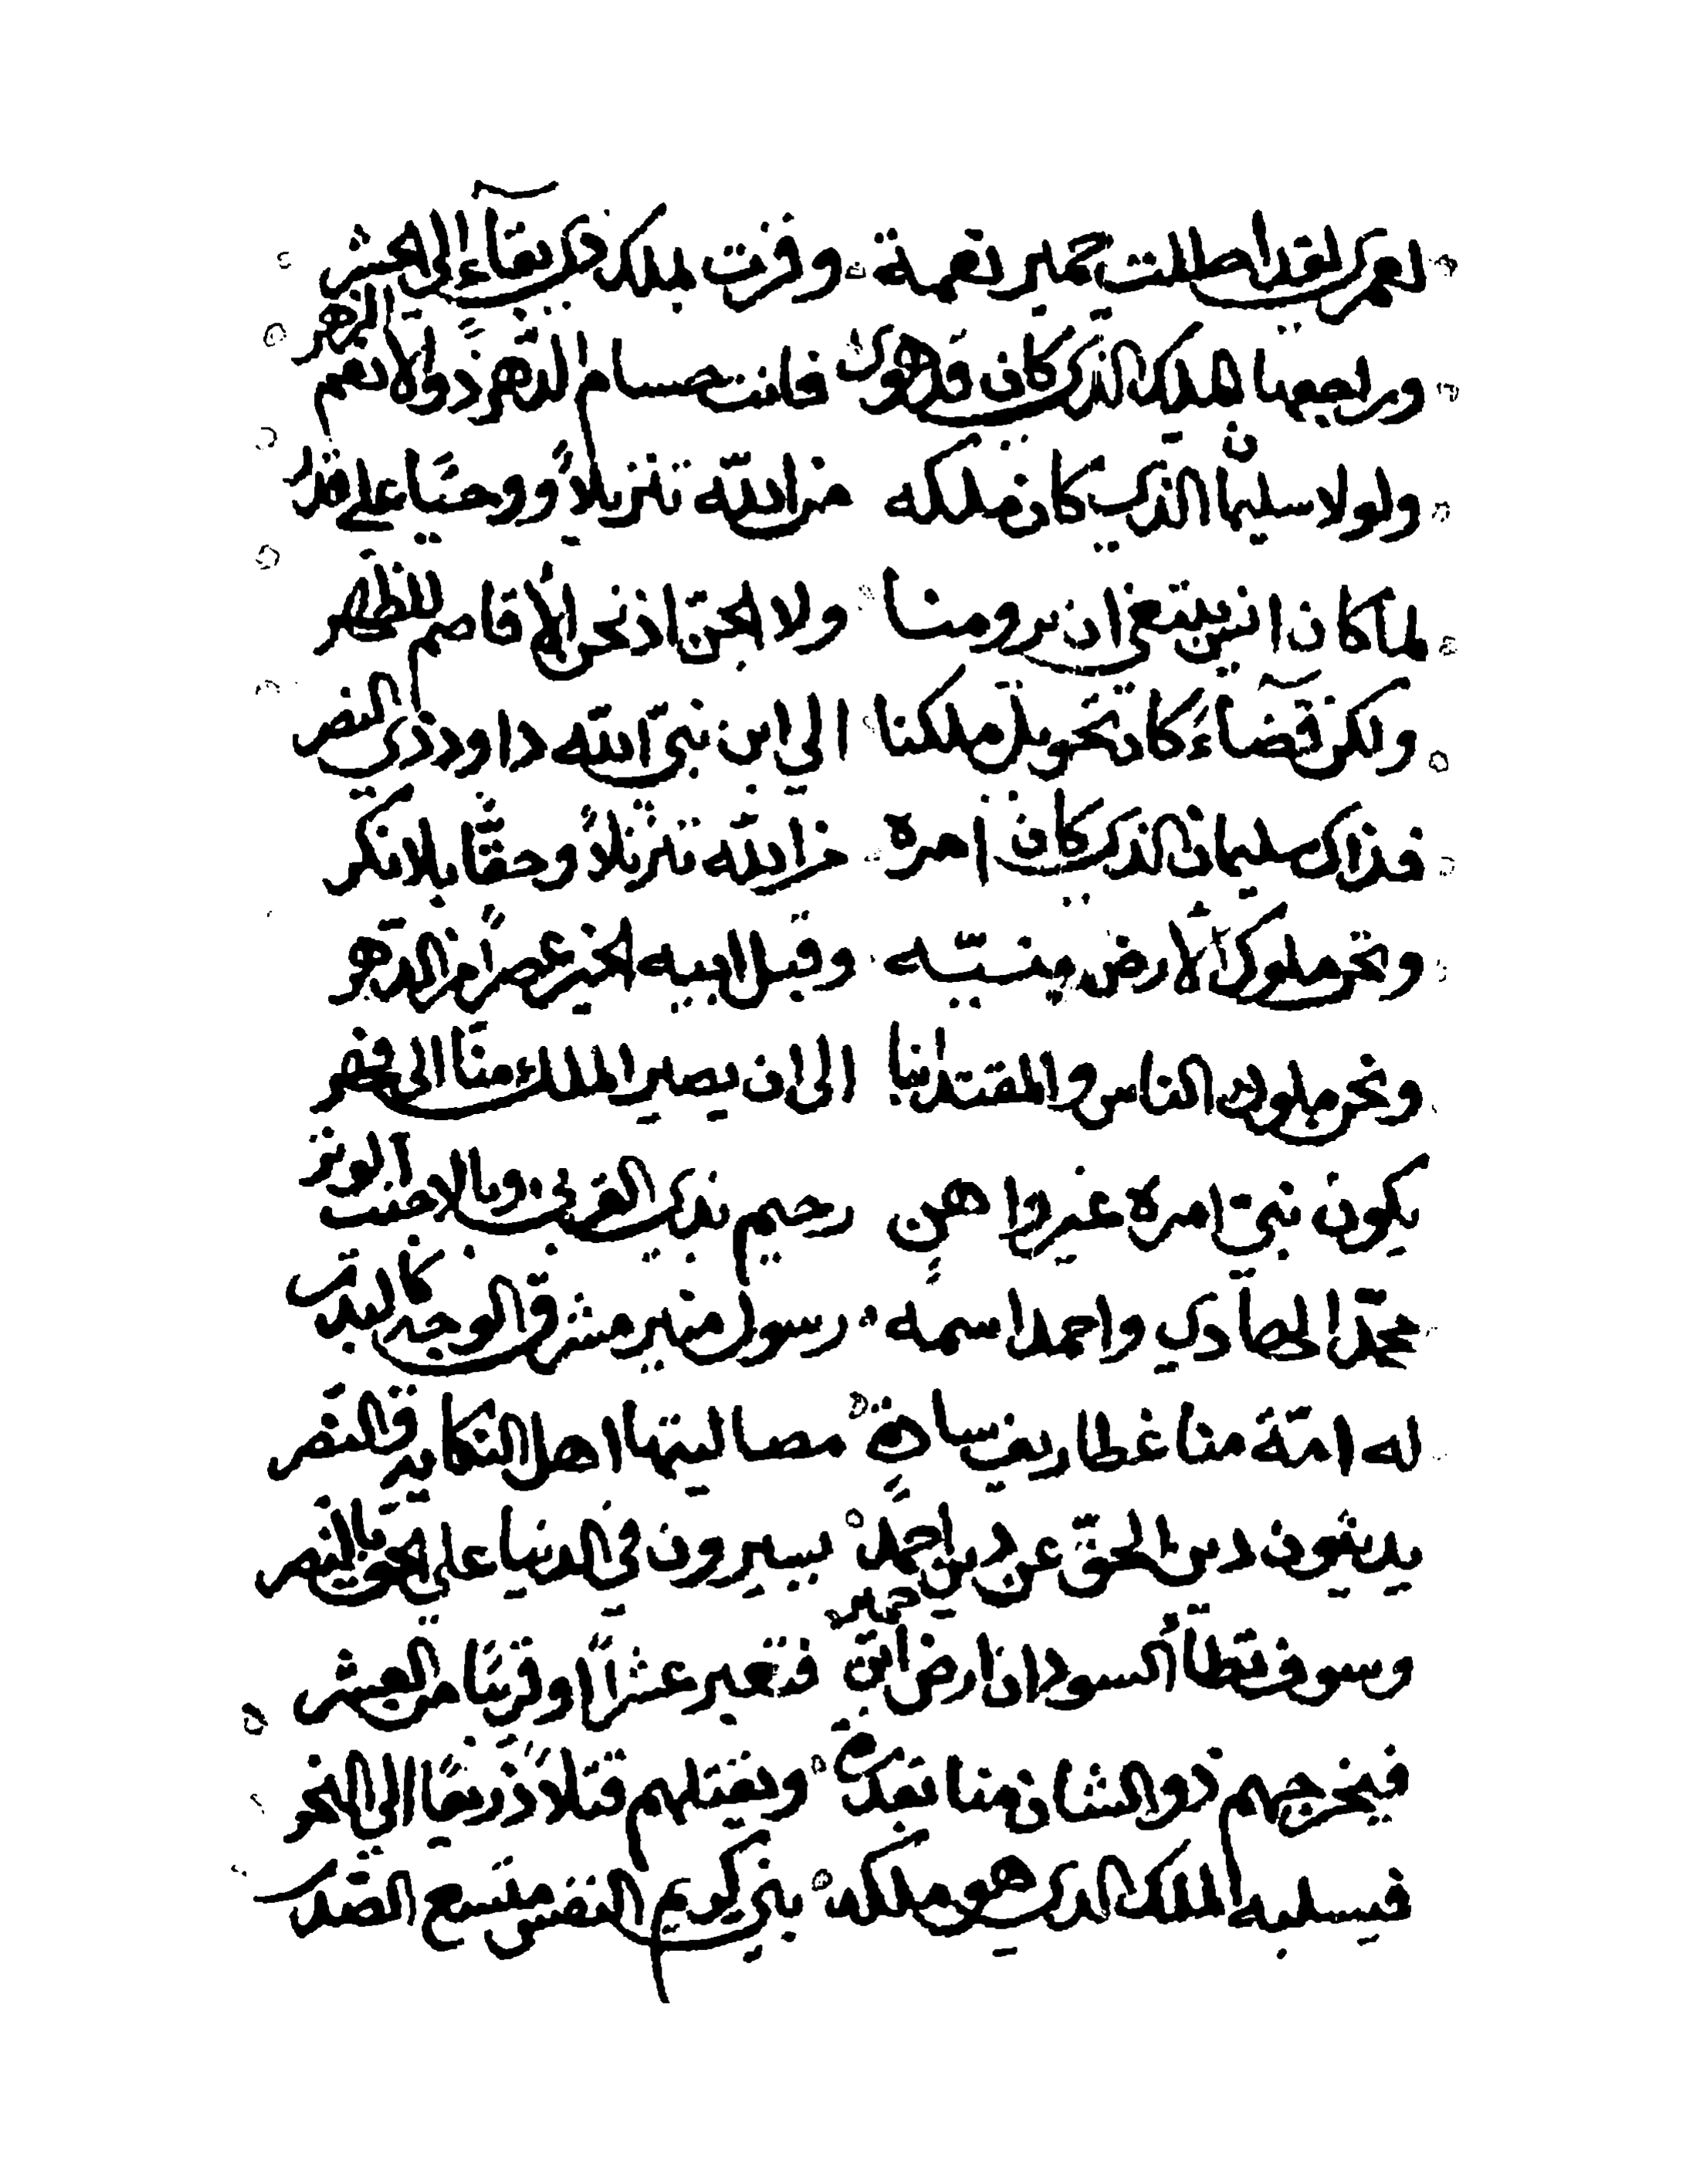 لعمري لقد اظلت حمير نعمة وفزت بملك ذي بقاء الى الحشر
ويرجعها الملك الذي كان قد هوى فانت حسام الدهر ذو الانعم الزهر
ولولا سليمان الذي كان ملكه من الله تنزيلاً ووحيًا على قدر
لما كان انس يبتغي ان يرومنا ولا الجن اذ نحن الأُلى قاصم للظهر
ولكن قضاءً كان تحويل ملكنا الى ابن نبي الله داود ذي النصر
فذاك سليمان الذي كان امره من الله تنزيلاً وحقًا بلا نكر
ونحن ملوك الأرض من نسيّه وقبل ابيه الخير عصرًا من الدهر
ونحن ملوك الناس والمقتدا بنا الى ان يصير الملك منّا الى فهر
يكون نبيّ امره غير واهنٍ رحيم بذي القربى وبالاجنب الوتر
محمّد الهادي واحمد اسمه رسول منير مشرق الوجه كالبدر
له امّة منا غطاريف سادةٍ مصاليتها اهل النكاية والنصر
يديثون دين الحقّ عن دين احمدٍ يسيرون في الدنيا على الحق بالنصر
وسوف تطأ السودان ارض ابن حمير فتعبر عشرًا او قريبًا من العشر
فيخرجهم ذو الشان منا بقدرة ويقتلهم قتلاً ذريعًا الى البحر
فيسلبه الملك الذي هو ملكه بني كريم النفس متسع الصدر